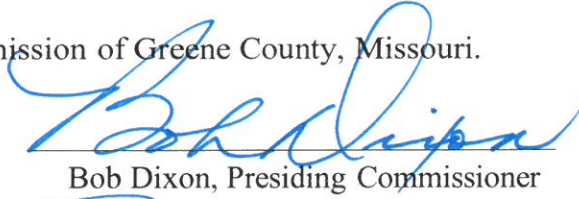 mission of Greene County, Missouri.
Bob Dixon
Bob Dixon, Presiding Commissioner